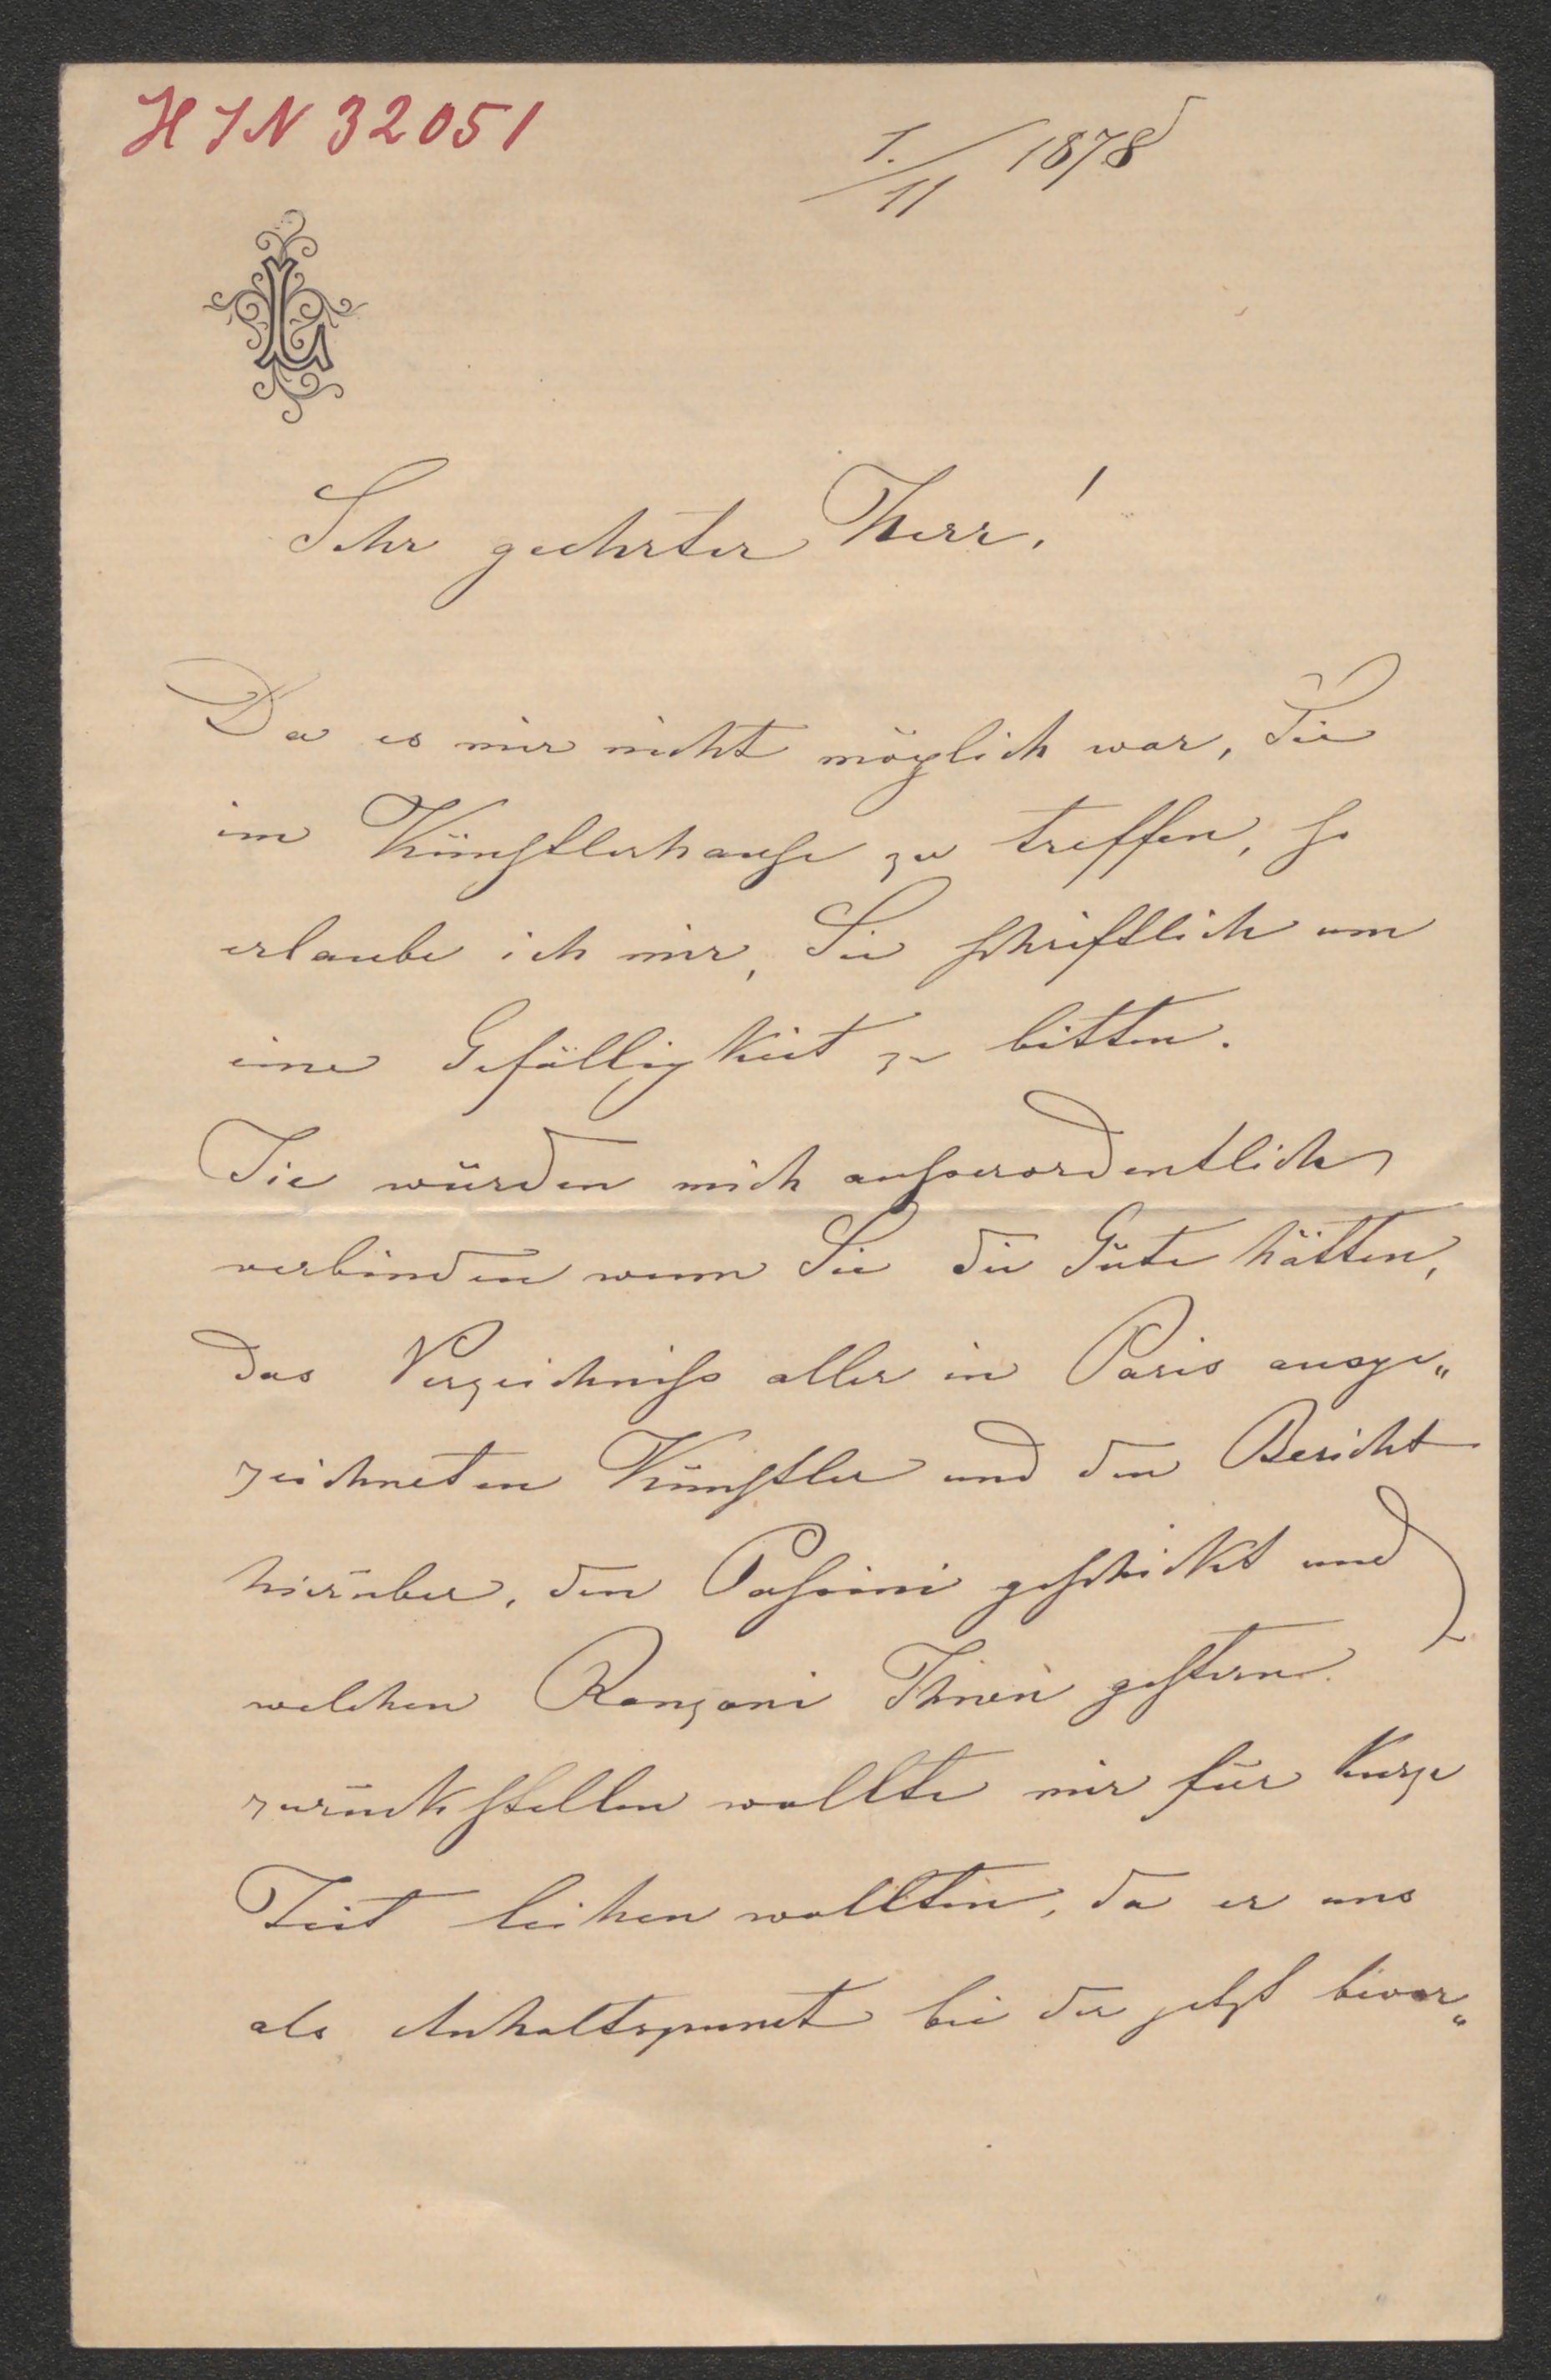 HIN 32051
1./11 1878
L
Sehr geehrter Herr!
Da es mir nicht möglich war, Sie
im Künstlerhause zu treffen, so
erlaube ich mir, Sie schriftlich um
eine Gefälligkeit zu bitten.
Sie würden mich ausserordentlich
verbinden wenn Sie die Güte hätten,
das Verzeichniss aller in Paris ausge„
zeichneten Künstler und den Bericht
hierüber, den Passini geschickt und
welchen Ranzoni Ihnen gestern
zurückstellen wollte mir für kurze
Zeit leihen wollten, da er uns
als Anhaltspunct bei der jetzt bevor„